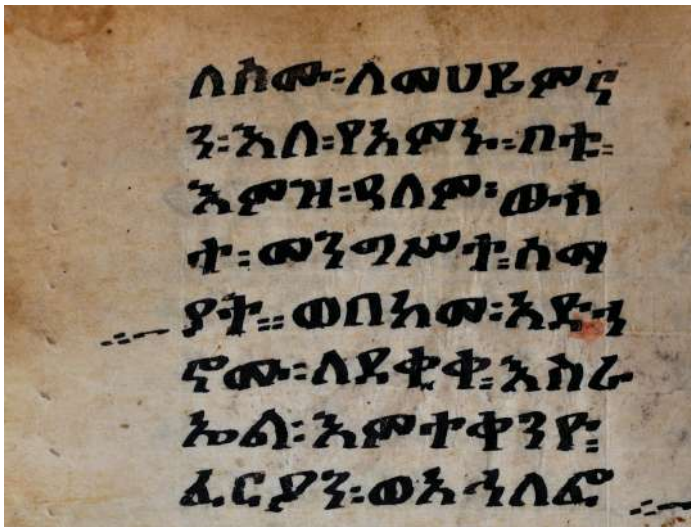 ለስሙ፡ለመሀይምና
ን፡እለ፡የአምኑ፡በቱ፡
እምዝ፡ዓለም፡ውስ
ተ፡መንግሥተ፡ሰማ
ያት።ወበከመ፡አድኀ
ኖሙ፡ለደቂቀ፡እስራ
ኤል፡እምተቀንዮ፡
ፈርዖን፡ወአኅለፎ